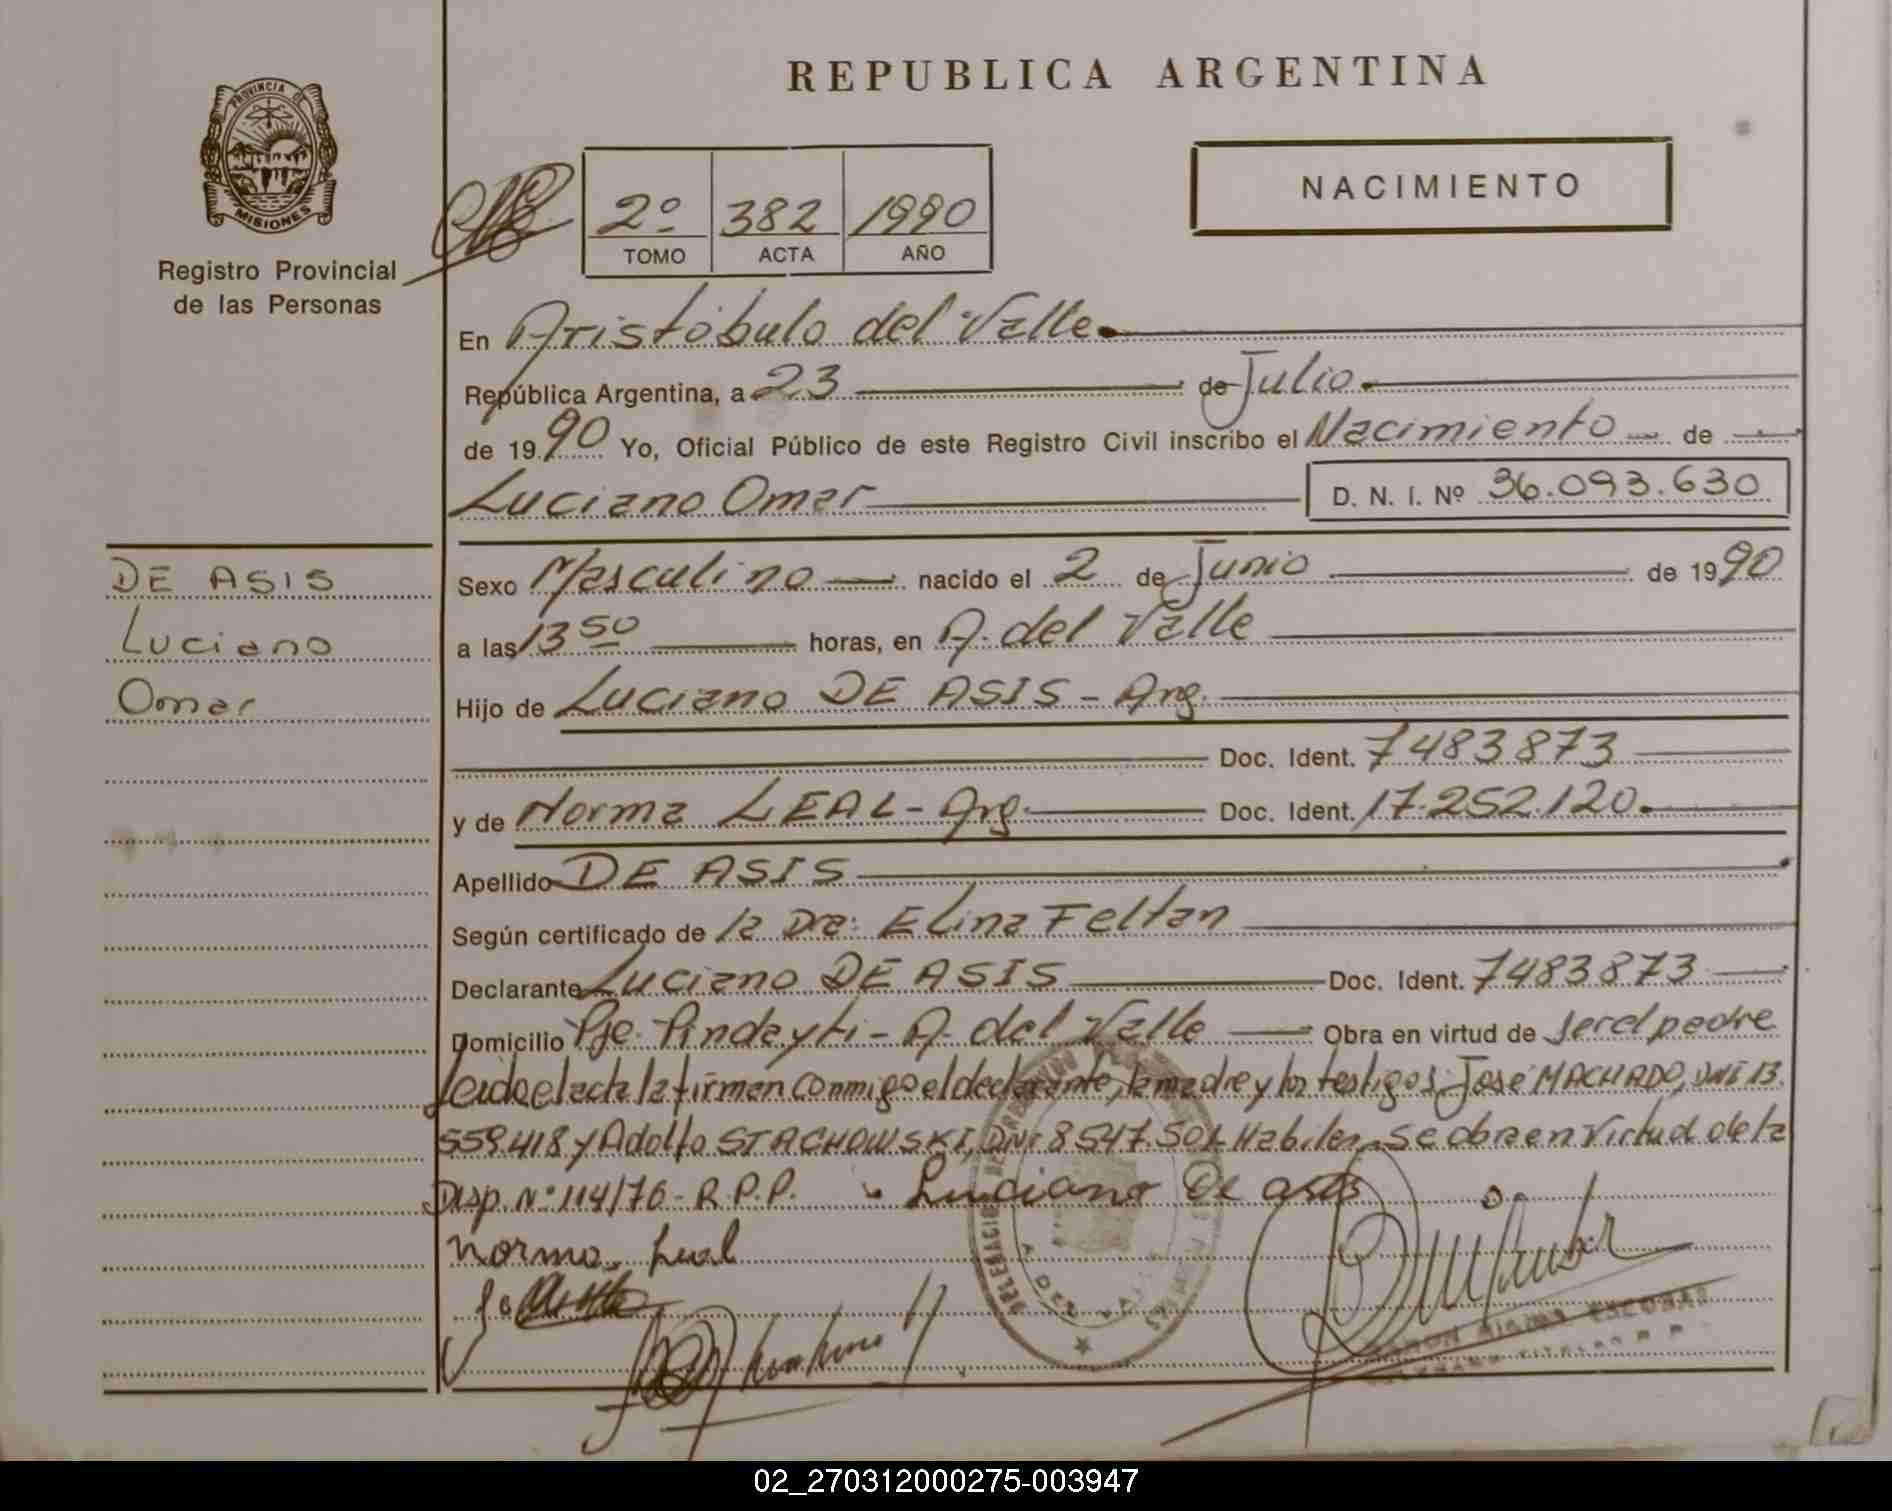 REPUBLICA ARGENTINA
PROVINCIA DE
MISIONES
Registro Provincial
de las Personas
2º 382 1990
TOMO ACTA AÑO
NACIMIENTO
En Aristóbulo del Valle
República Argentina, a 23 de Julio
de 1990 Yo, Oficial Público de este Registro Civil inscribo el Nacimiento de
Luciano Omar D. N. I. Nº 36.093.630
DE ASIS
Luciano
Omar
Sexo Masculino nacido el 2 de Junio de 1990
a las 13 50 horas, en A. del Valle
Hijo de Luciano DE ASIS - Arg.
Doc. Ident. 7483873
y de Norma LEAL - Arg. Doc. Ident. 17.252.120.
Apellido DE ASIS
Según certificado de la Dra: Elina Feltan
Declarante Luciano DE ASIS Doc. Ident. 7483873
Domicilio Pje. Pindayti - A. del Valle Obra en virtud de ser el padre
Leida el acta la firman conmigo el declarante, la madre y los testigos José MACHADO, DNI 13.
559.418 y Adolfo STACHOWSKI, DNI 8547.501 Habiles. Se obra en virtud de la
Disp. Nº 114/76 - R.P.P. Luciano De asis
Norma Leal
ESCOBAR
02_270312000275-003947